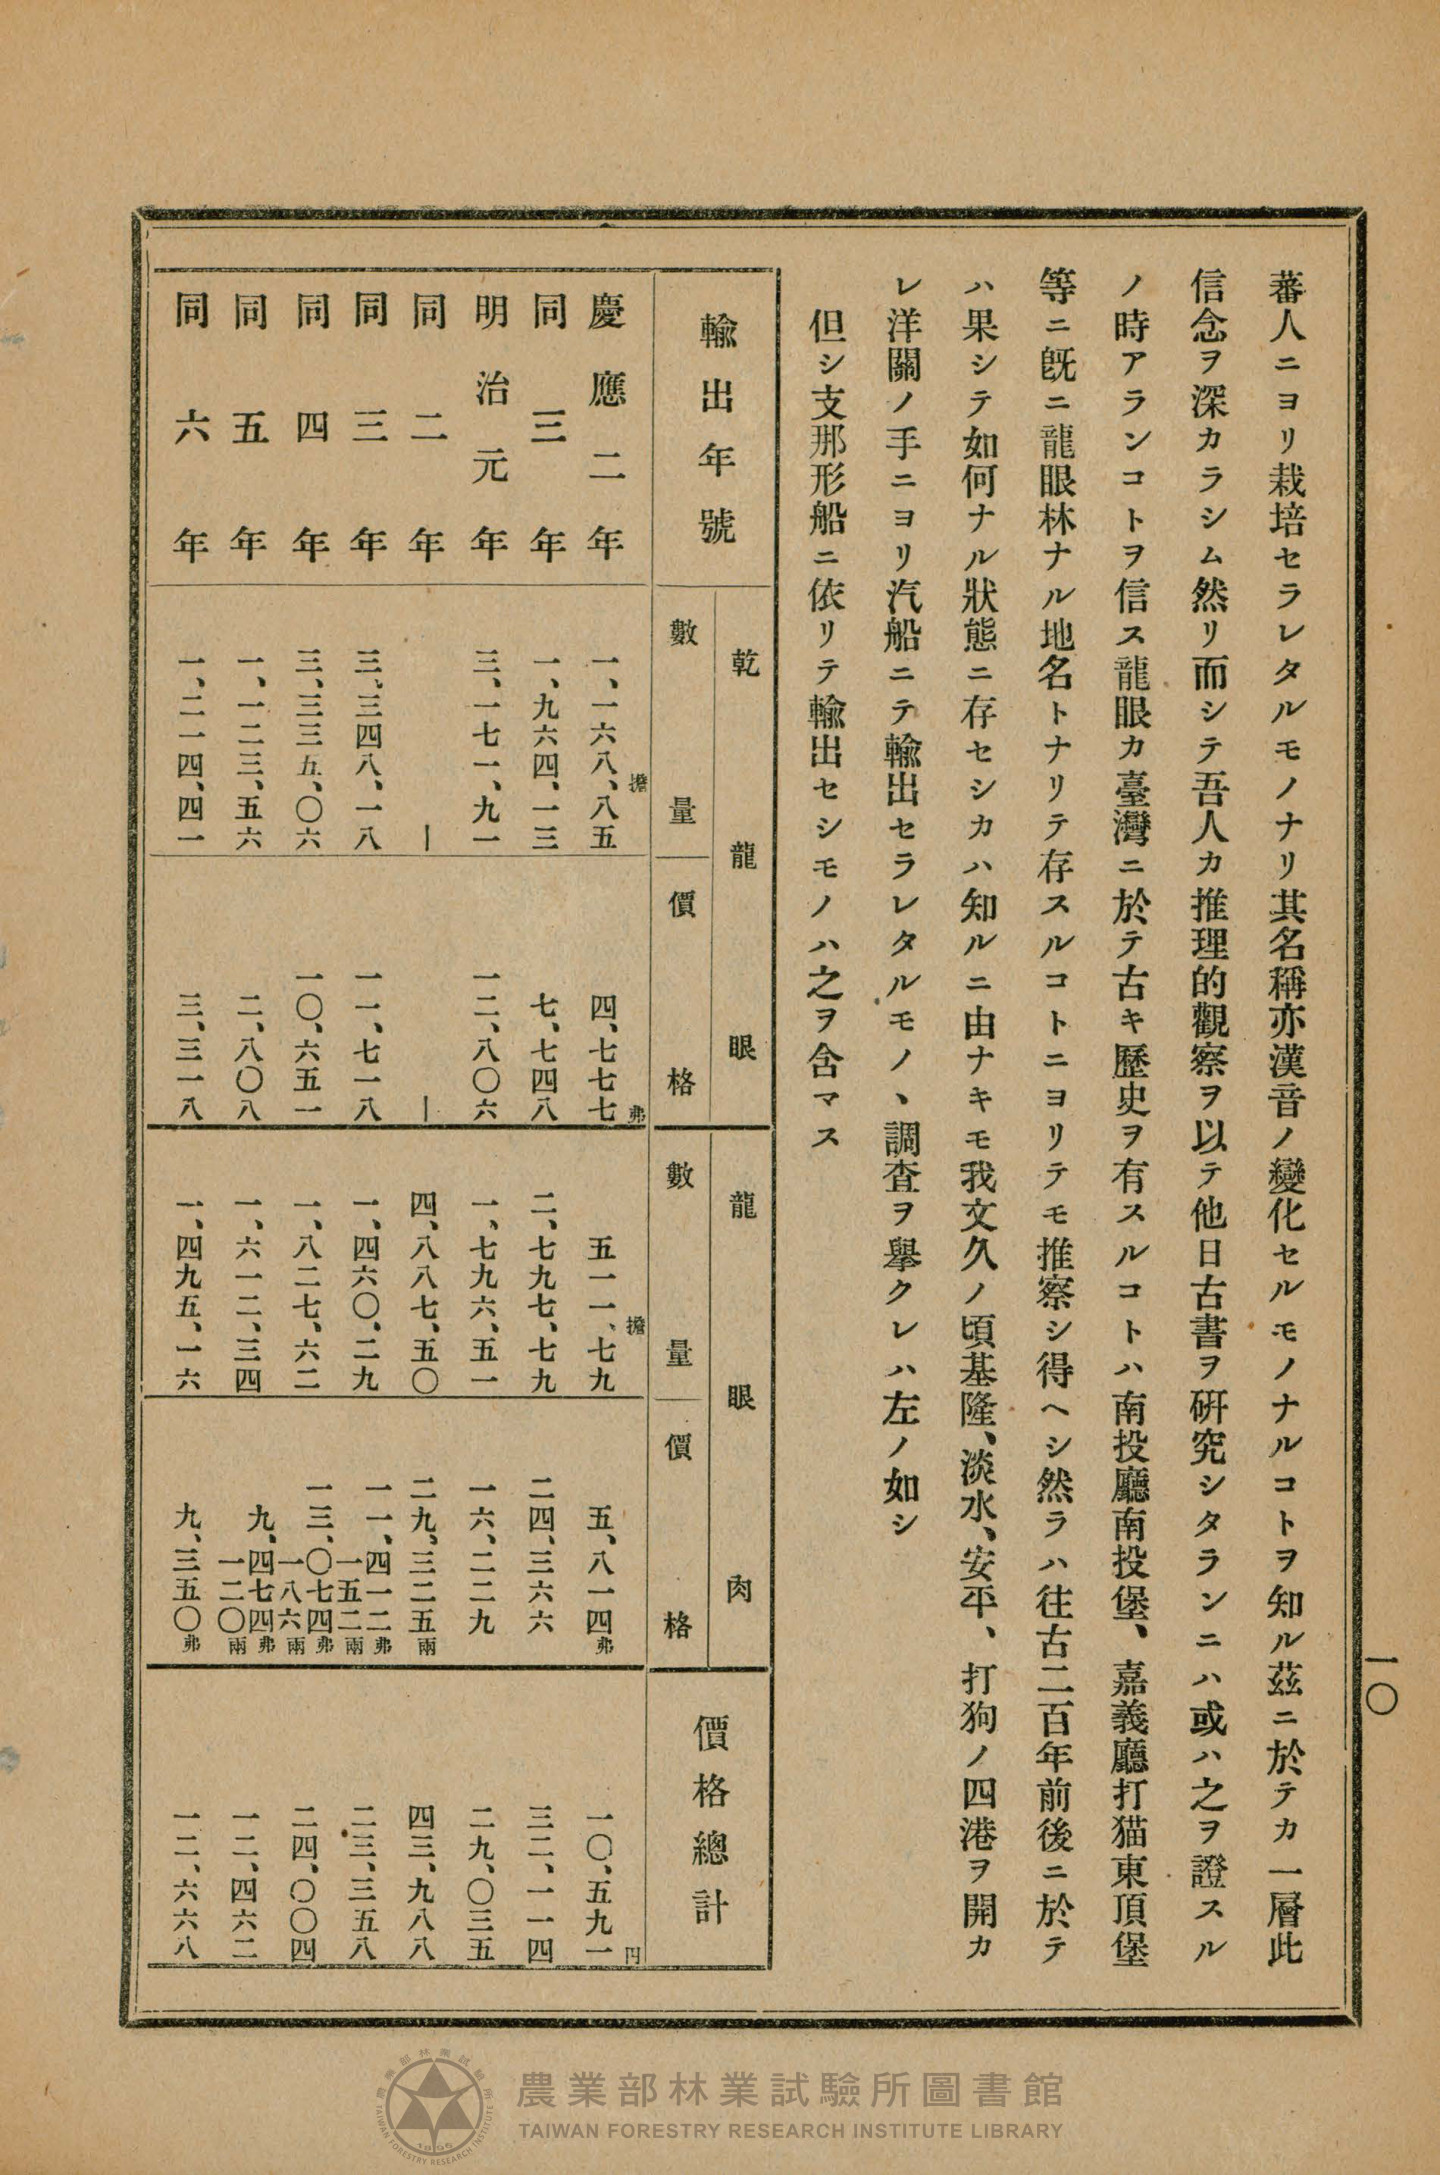 一〇
蕃人ニヨリ栽培セラレタルモノナリ其名稱亦漢音ノ變化セルモノナルコトヲ知ル茲ニ於テカ一層此
信念ヲ深カラシム然リ而シテ吾人カ推理的觀察ヲ以テ他日古書ヲ硏究シタランニハ或ハ之ヲ證スル
ノ時アランコトヲ信ス龍眼カ臺灣ニ於テ古キ歷史ヲ有スルコトハ南投廳南投堡、嘉義廳打猫東頂堡
等ニ旣ニ龍眼林ナル地名トナリテ存スルコトニヨリテモ推察シ得ヘシ然ラハ往古二百年前後ニ於テ
ハ果シテ如何ナル狀態ニ存セシカハ知ルニ由ナキモ我文久ノ頃基隆、淡水、安平、打狗ノ四港ヲ開カ
レ洋關ノ手ニヨリ汽船ニテ輸出セラレタルモノヽ調査ヲ擧クレハ左ノ如シ
但シ支那形船ニ依リテ輸出セシモノハ之ヲ含マス
輸出年號 乾龍眼 數量 價格 龍眼肉 數量 價格 價格總計
慶應二年 一、一六八、八五擔 四、七七七弗 五一一、七九擔 五、八一四弗 一〇、五九一円
同三年 一、九六四、一三 七、七四八 二、七九七、七九 二四、三六六 三二、一一四
明治元年 三、一七一、九一 一二、八〇六 一、七九六、五一 一六、二二九 二九、〇三五
同二年 ー ー 四、八八七、五〇 二九、三二五兩 四三、九八八
同三年 三、三四八、一八 一一、七一八 一、四六〇、二九 一一、四一二弗 一五二兩 二三、三五八
同四年 三、三三五、〇六 一〇、六五一 一、八二七、六二 一三、〇七四弗 一八六兩 二四、〇〇四
同五年 一、一二三、五六 二、八〇八 一、六一二、三四 九、四七四弗 一二〇兩 一二、四六二
同六年 一、二一四、四一 三、三一八 一、四九五、一六 九、三五〇弗 一二、六六八
農業部林業試驗所圖書館
TAIWAN FORESTRY RESEARCH INSTITUTE LIBRARY